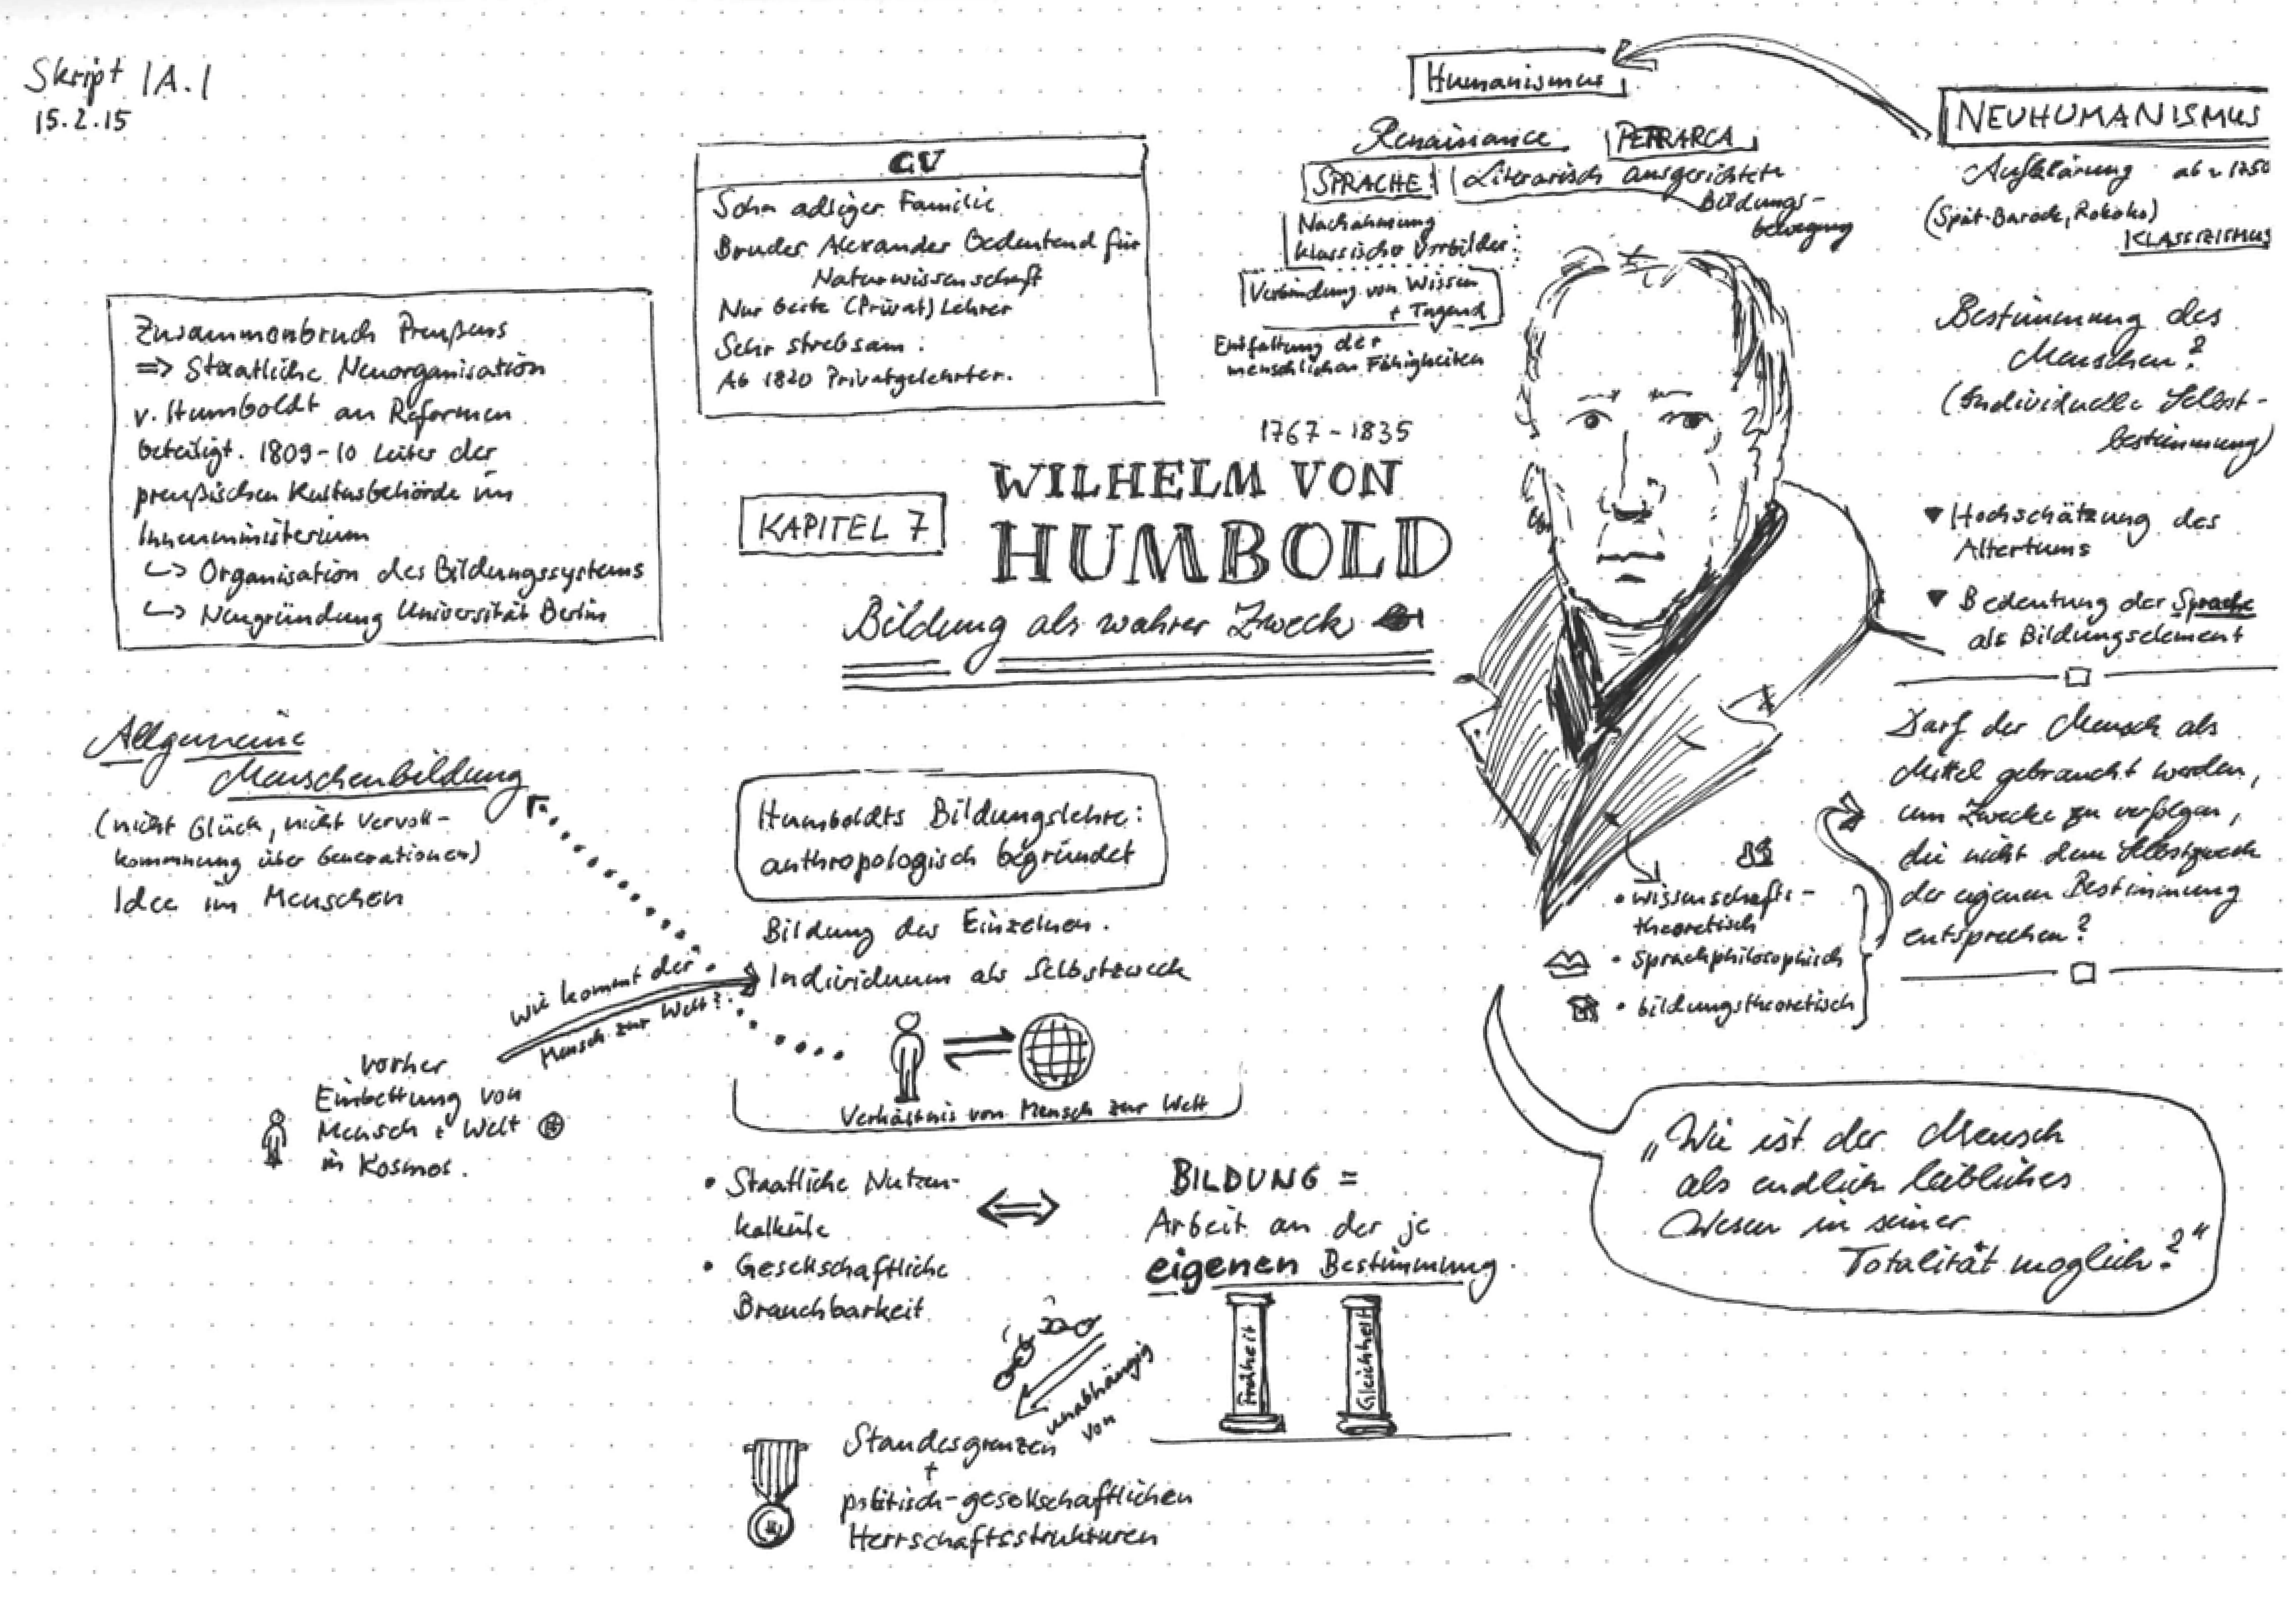 Skript IA.1
15.2.15
CV
Sohn adliger Familie
Bruder Alexander Bedeutend für
Naturwissenschaft
Nur beste (Privat) Lehrer
Sehr strebsam.
Ab 1820 Privatgelehrter.
Humanismus
Renaissance PETRARCA
SPRACHE! Literarisch ausgerichtete
Bildungs-
bewegung
Nachahmung
klassischer Vorbilder
Verbindung von Wissen
+ Tugend
Entfaltung der
menschlichen Fähigkeiten
NEUHUMANISMUS
Aufklärung ab ~ 1750
(Spät-Barock, Rokoko)
KLASSIZISMUS
Bestimmung des
Menschen?
(Individuelle Selbst-
bestimmung)
▼ Hochschätzung des
Altertums
▼ Bedeutung der Sprache
als Bildungselement
Zusammenbruch Preußens
=> Staatliche Neuorganisation
v. Humboldt an Reformen
beteiligt. 1809-10 Leiter der
preußischen Kultusbehörde im
Innenministerium
↪ Organisation des Bildungssystems
↪ Neugründung Universität Berlin
KAPITEL 7
1767 - 1835
WILHELM VON
HUMBOLD
Bildung als wahrer Zweck
Darf der Mensch als
Mittel gebraucht werden,
um Zwecke zu verfolgen,
die nicht dem Selbstzweck
der eigenen Bestimmung
entsprechen?
Allgemeine
Menschenbildung
(nicht Glück, nicht Vervoll-
kommnung über Generationen)
Idee im Menschen
Humboldts Bildungslehre:
anthropologisch begründet
Bildung des Einzelnen.
Individuum als Selbstzweck
Wie kommt der
Mensch zur Welt?
vorher
Einbettung von
Mensch + Welt
in Kosmos.
Verhältnis von Mensch zur Welt
• wissenschafts-
theoretisch
• sprachphilosophisch
• bildungstheoretisch
„Wie ist der Mensch
als endlich leibliches
Wesen in seiner
Totalität möglich?"
• Staatliche Nutzen-
kalküle
• Gesellschaftliche
Brauchbarkeit
BILDUNG =
Arbeit an der je
eigenen Bestimmung.
Freiheit
Gleichheit
unabhängig
von
Standesgrenzen
+
politisch-gesellschaftlichen
Herrschaftsstrukturen